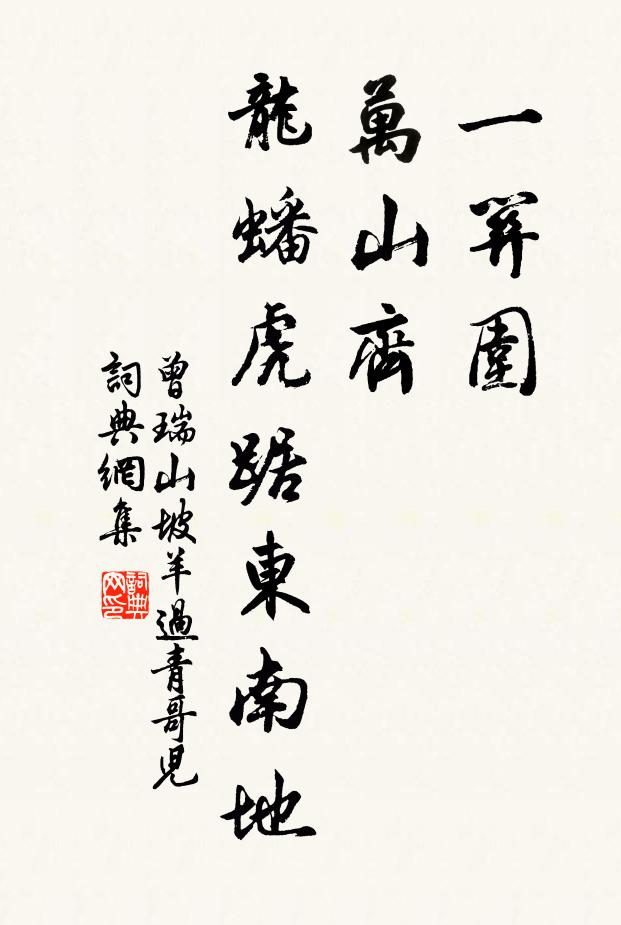 一圍
萬山齊
龍蟠虎踞東南地
曾瑞山坡羊過青哥兒
詞典網集
詞典
网印